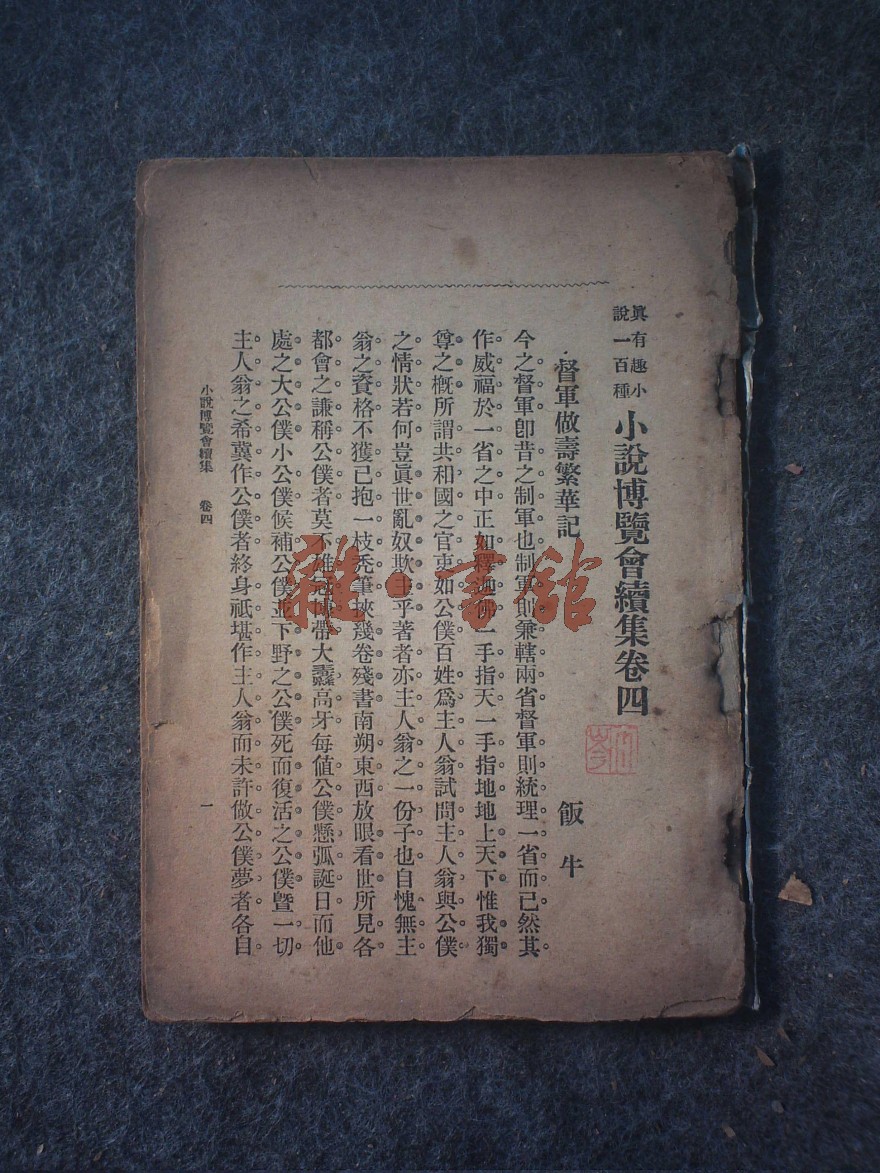 真有趣小
說一百種
小說博覽會續集卷四
督軍做壽繁華記 飯牛
今之督軍卽昔之制軍也制軍則兼轄兩省督軍則統理一省而已然其
作威福於一省之中正如釋迦佛一手指天一手指地地上天下惟我獨
尊之槪所謂共和國之官吏如公僕百姓爲主人翁試問主人翁與公僕
之情狀若何豈眞世亂奴欺主乎著者亦主人翁之一份子也自愧無主
翁之資格不獲已抱一枝禿筆挾幾卷殘書南朔東西放眼看世所見各
都會之謙稱公僕者莫不雄冠博帶大纛高牙每值公僕懸弧誕日而他
處之大公僕小公僕候補公僕並下野之公僕死而復活之公僕曁一切
主人翁之希冀作公僕者終身祗堪作主人翁而未許做公僕夢者各自
小說博覽會續集 卷四 一
雜·書館